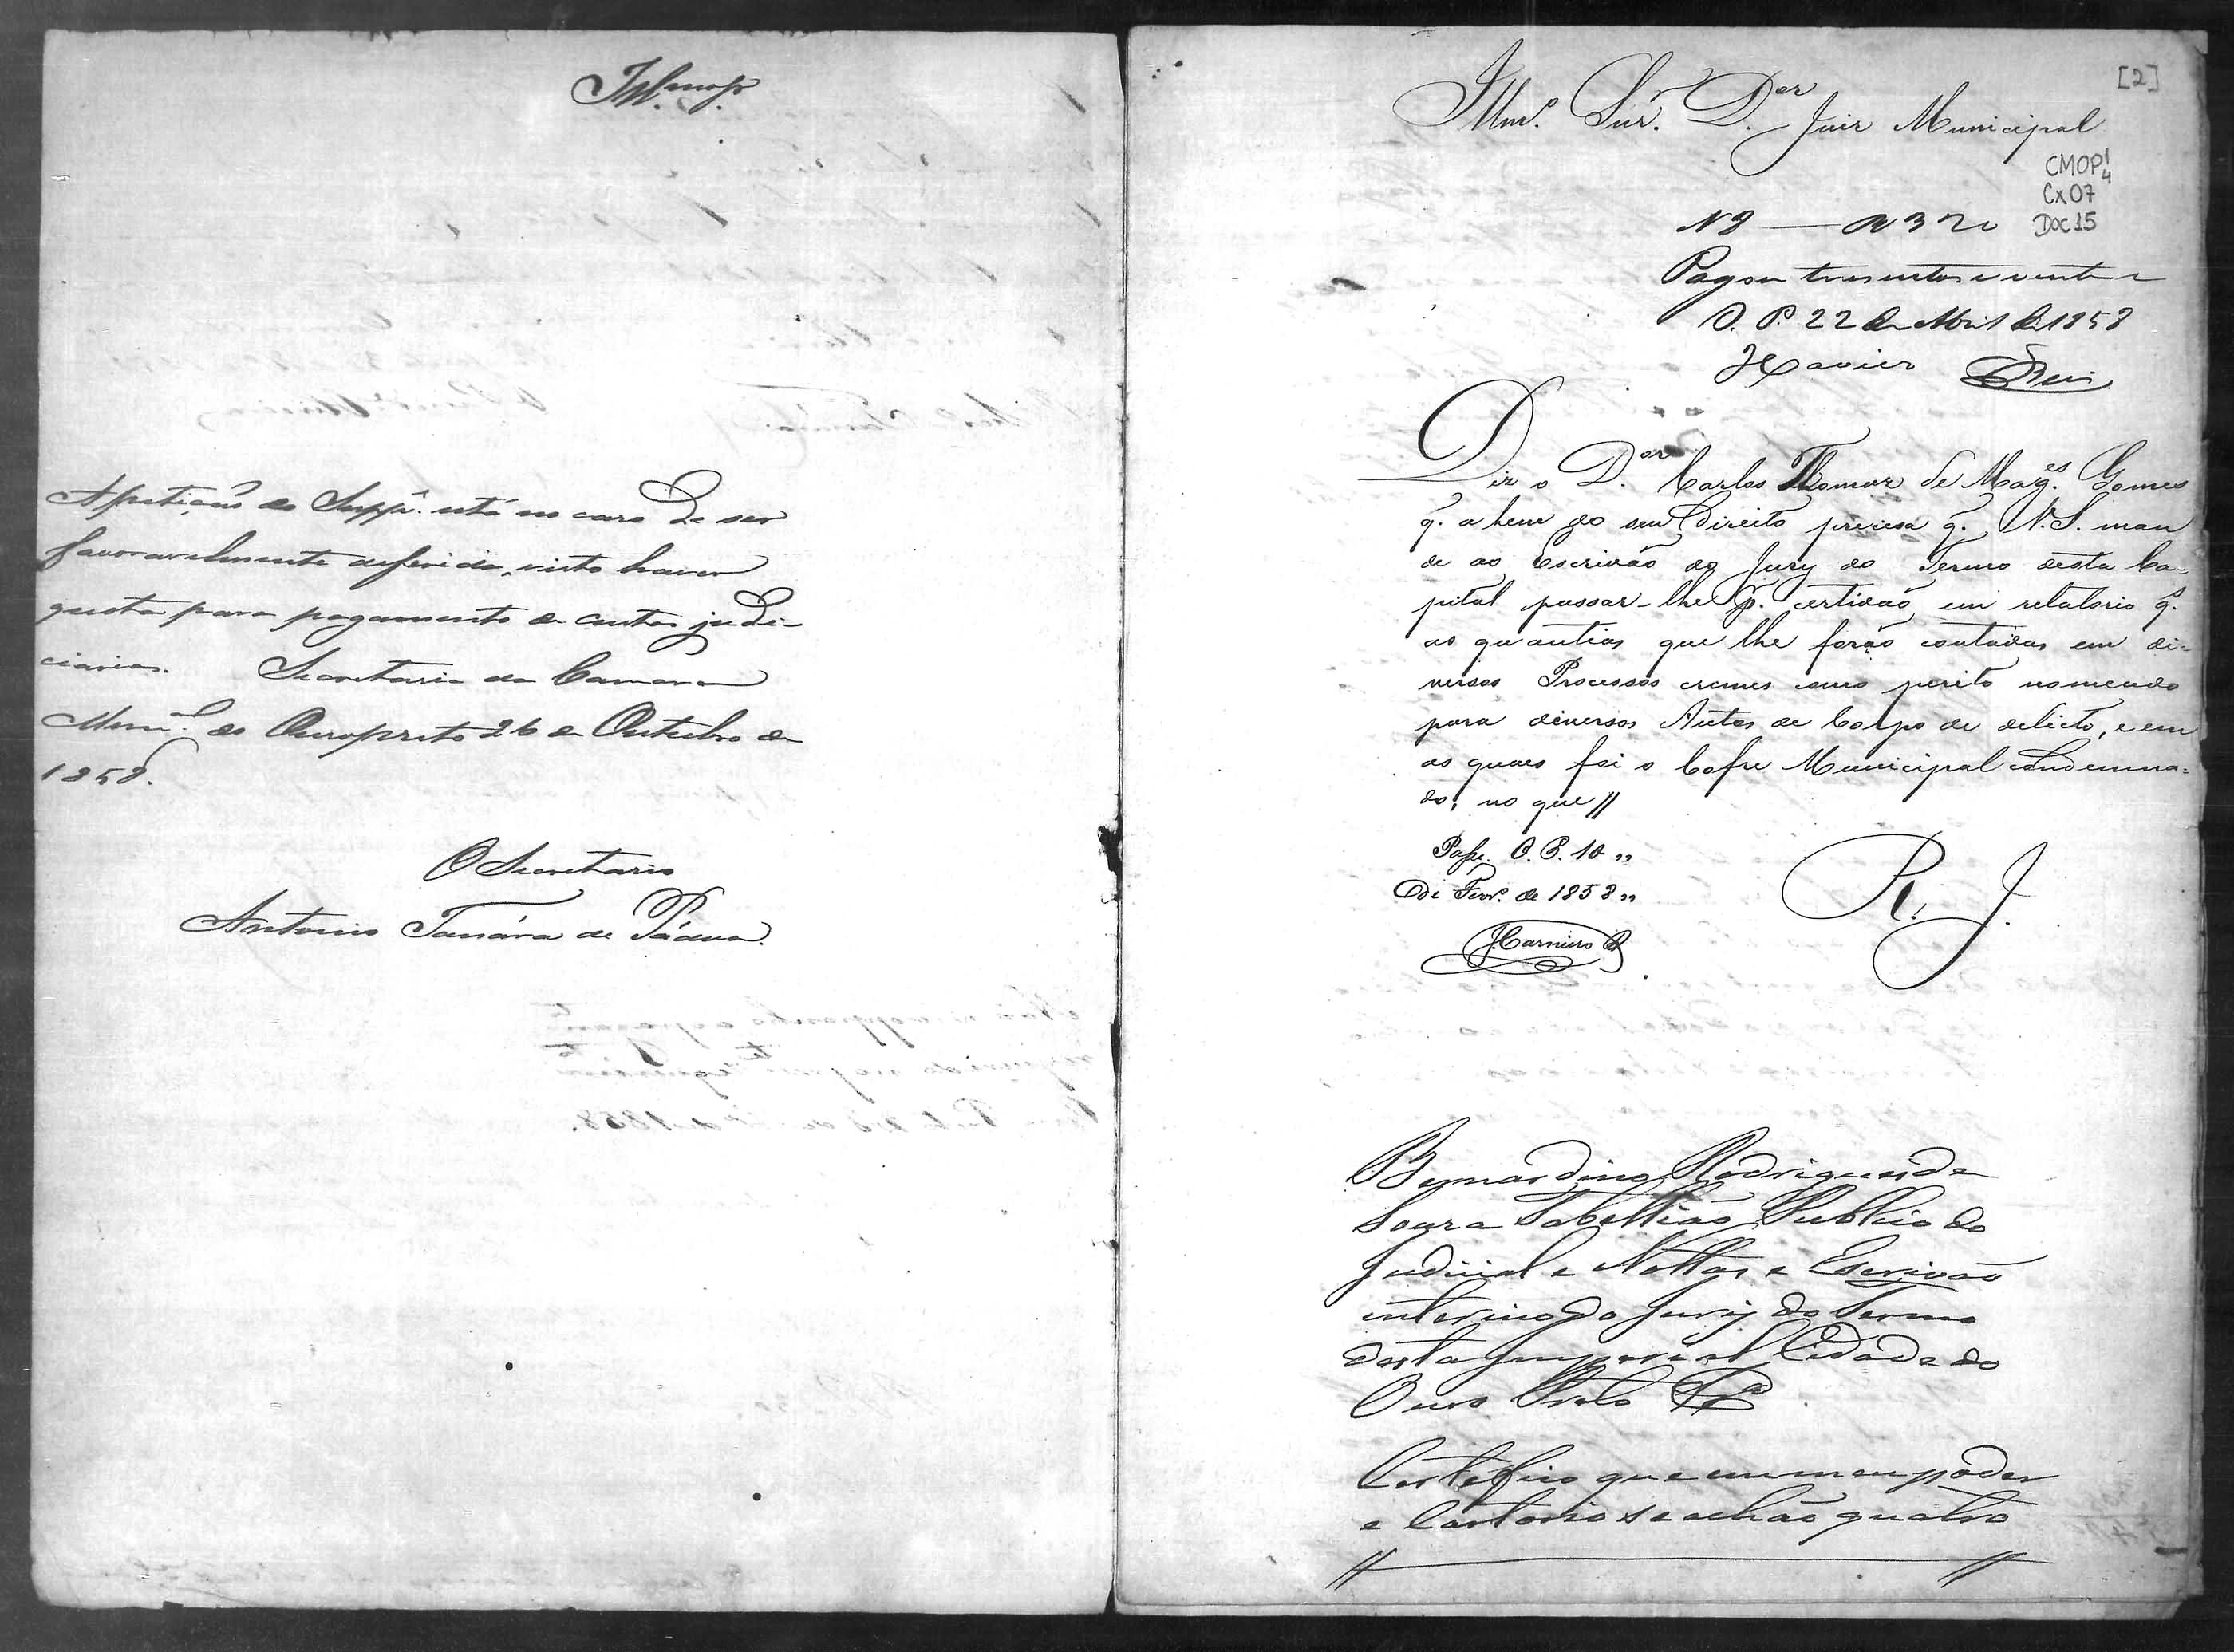 Ill.mos Sr.
A petição do Supp.e está no caso de ser
favoravelmente deferida, visto haver
quota para pagamento de custas judi-
ciarias. Secretaria da Camara
Mun.al do Ouro preto 26 de Outubro de
1858.
O Secretario
Antonio de Pádua.
[2]
Illm.o Snr. D.or Juiz Municipal
CMOP
Cx 07
DOC 15
N 8 — R 320
Pagou tresentos e vinte r
O. P. 22 de Abril de 1858
Xavier Reis
Diz o D.or Carlos Thomaz de Mag.es Gomes
q. a bem do seu Direito precisa q. V.S. man
de ao Escrivão do Jury do Termo desta Ca-
pital passar-lhe p. certidão em relatorio q.
as quantias que lhe forão contadas em di-
versos Processos crimes como perito nomeado
para diversos Autos de Corpo de delicto, e em
os quaes foi o Cofre Municipal condemna-
do, no que //
Passe. O. P. 10 "
de Fevr.o de 1858 "
Carneiro
R. J.
Bernardino Rodrigues de
Souza Tabellião Publico do
Judicial e Nottas e Escrivão
interino do Jury do Termo
desta Imperial Cidade do
Ouro Preto
Certefico que em meu poder
e Cartorio se achão quatro